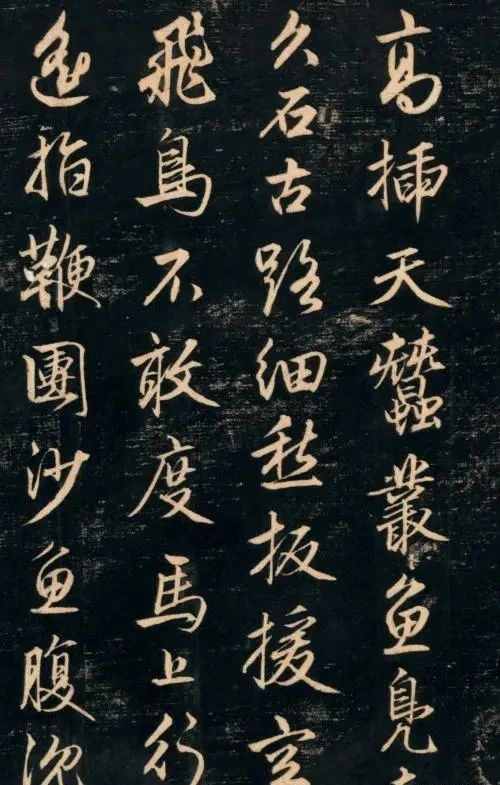 高插天蠶叢魚鳧
久石古路細愁扳援空
飛鳥不敢度馬上行
遙指鞭團沙魚腹